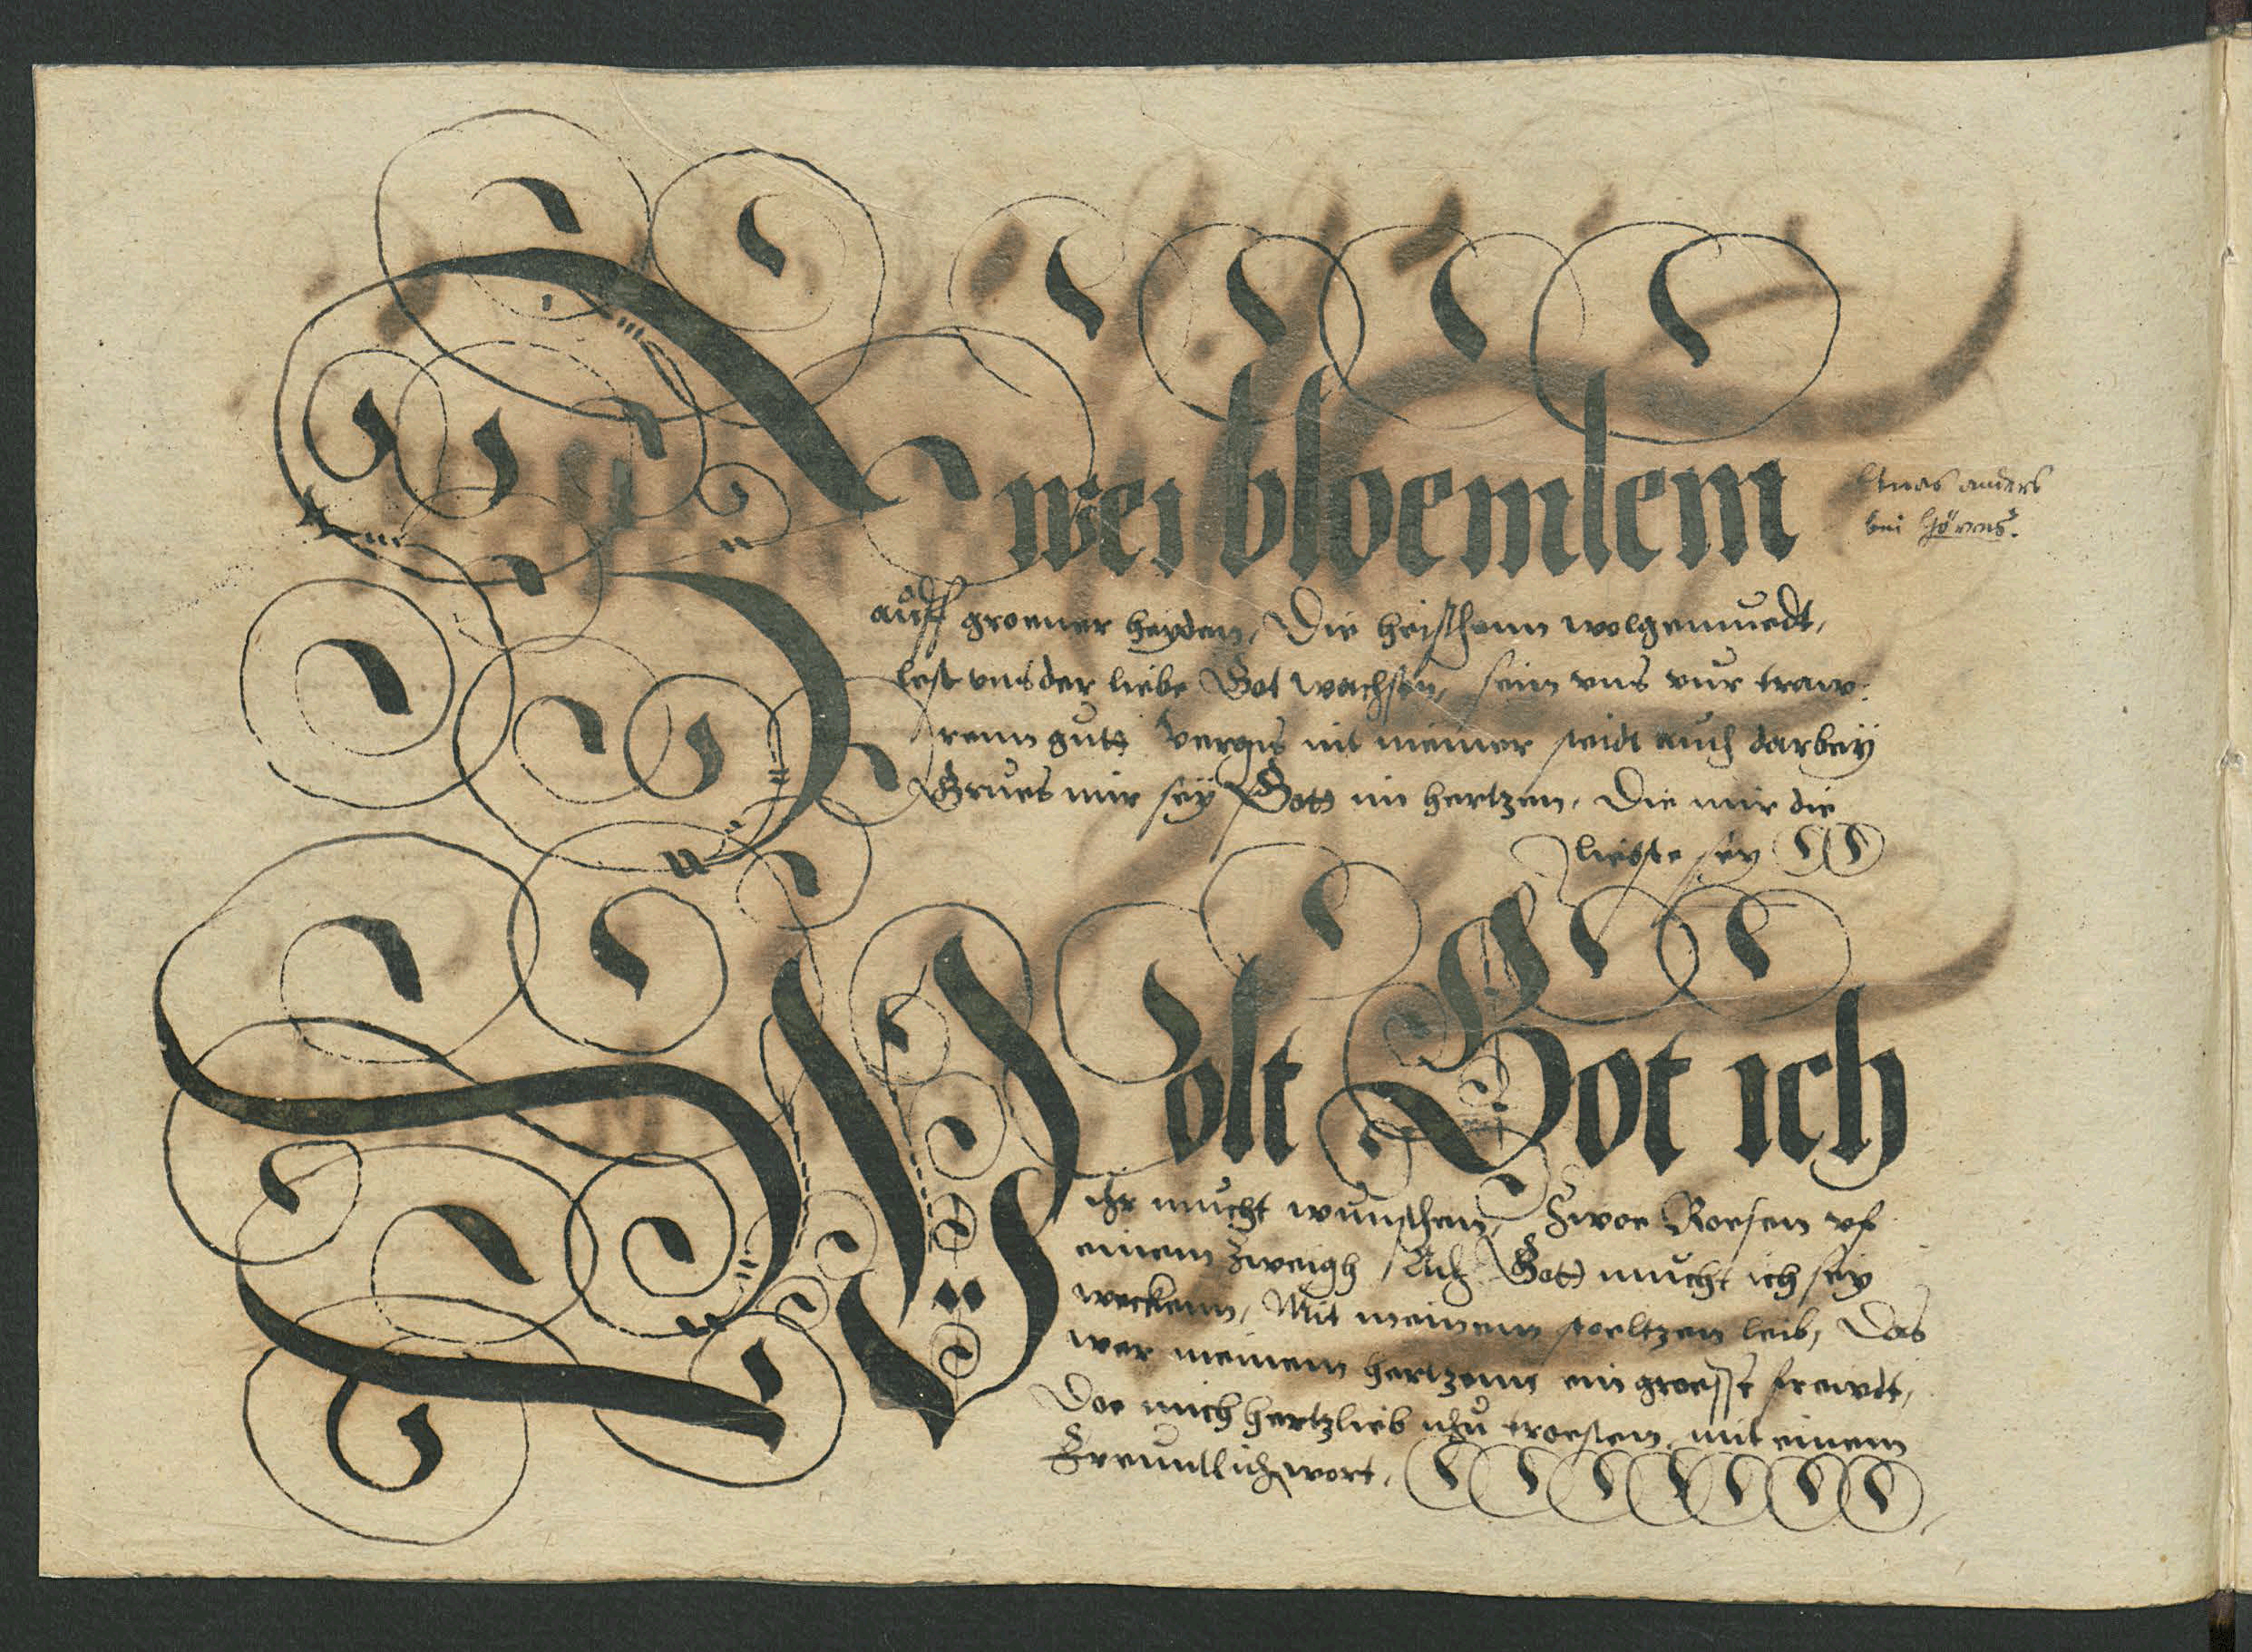 Zwei bloemlein
Etwas anders
bei Görres.
auff groener heyden, Die heischenn wolgemuedt,
lest uns der liebe Got wachsen, sein uns vur traw-
renn gutt vergis nit meiner steidt auch darbey
Grues mir sey Gott im hertzen, Die mir die
liebste sey
Wolt Got ich
ihr mucht wunschen, Zwoe Roesen uf
einem Zweigh, Ach Gott mucht ich sey
weckenn, Mit meinem stoeltzen leib, Das
wer meinem hertzenn ein groesse frewdt,
Doe mich hertzlieb thu troesten mit einem
Freuntlich wort.